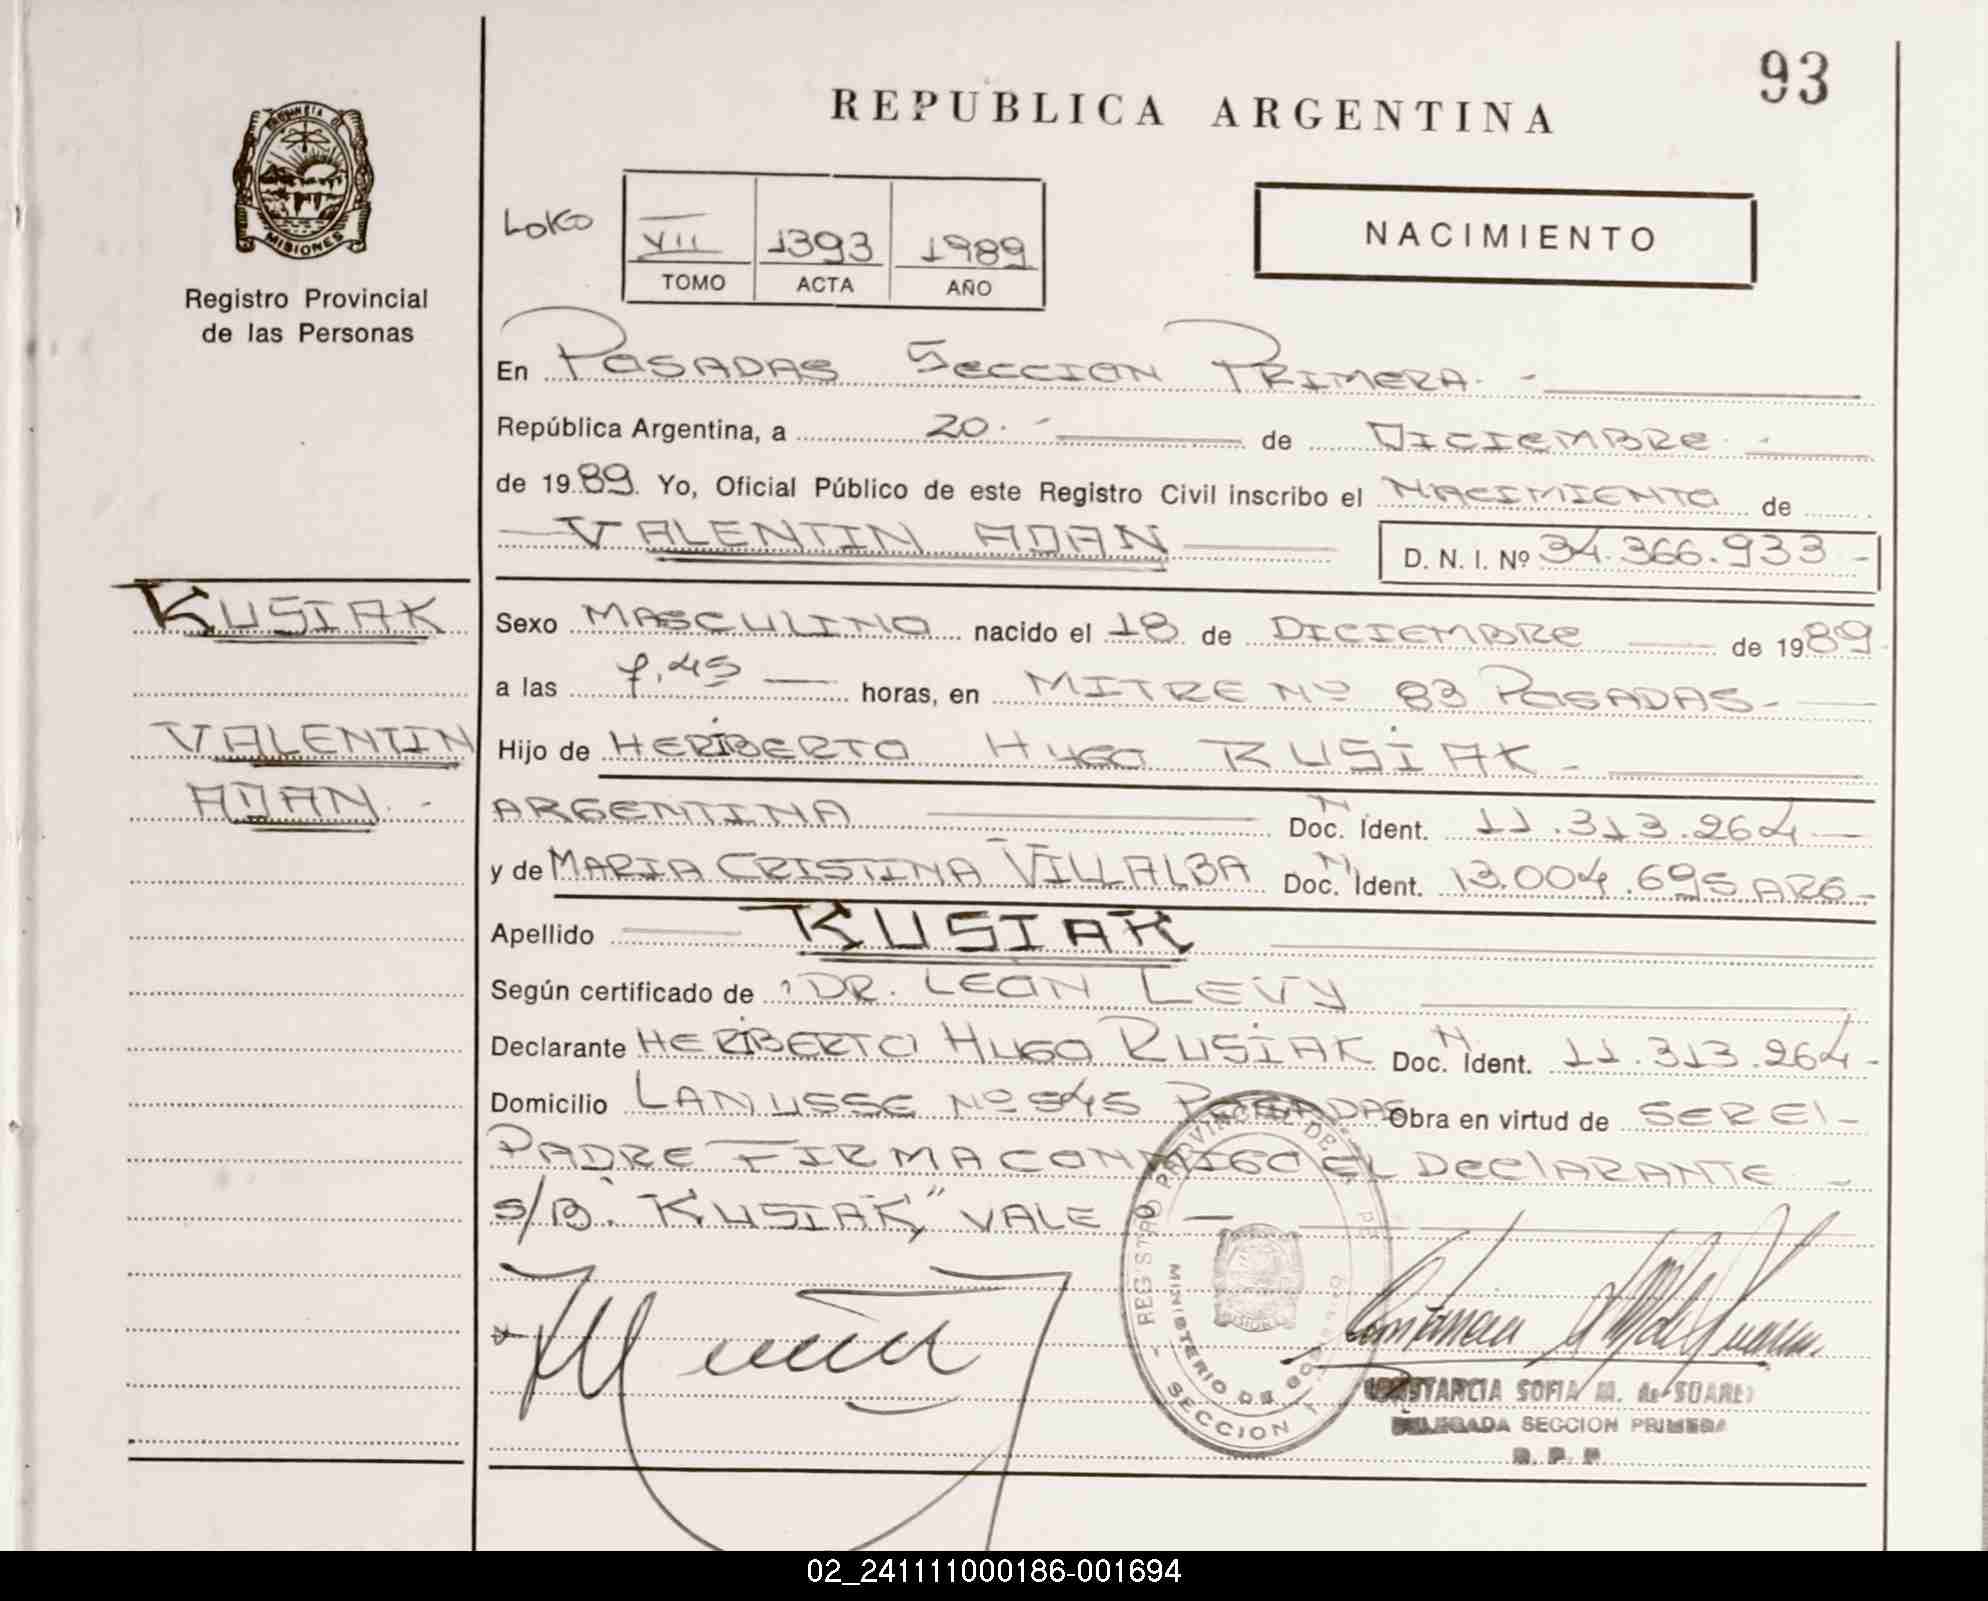 93
REPUBLICA ARGENTINA
PROVINCIA DE MISIONES
Registro Provincial
de las Personas
NACIMIENTO
VII 1393 1989
TOMO ACTA AÑO
En POSADAS SECCION PRIMERA.-
República Argentina, a 20.- de DICIEMBRE.-
de 1989. Yo, Oficial Público de este Registro Civil inscribo el NACIMIENTO de
VALENTIN ADAN D. N. I. Nº 34.366.933-
KUSIAK
VALENTIN
ADAN.-
Sexo MASCULINO nacido el 18 de DICIEMBRE de 1989.
a las 7,45 horas, en MITRE Nº 83 POSADAS-
Hijo de HERIBERTO HUGO KUSIAK-
ARGENTINA Doc. N Ident. 11.313.264-
y de MARIA CRISTINA VILLALBA Doc. N Ident. 13.004.695 ARG-
Apellido KUSIAK
Según certificado de DR. LEON LEVY
Declarante HERIBERTO HUGO KUSIAK Doc. N Ident. 11.313.264-
Domicilio LANUSSE Nº 545 POSADAS Obra en virtud de SER El-
PADRE FIRMA CONMIGO EL DEClARANTE-
S/B. "KUSIAK," VALE
REGISTRO PROVINCIAL DE LAS PE
MINISTERIO DE GOBIERNO
SECCION 1
CONSTANCIA SOFIA M. de SUAREZ
DELEGADA SECCION PRIMERA
R. P. P
02_241111000186-001694